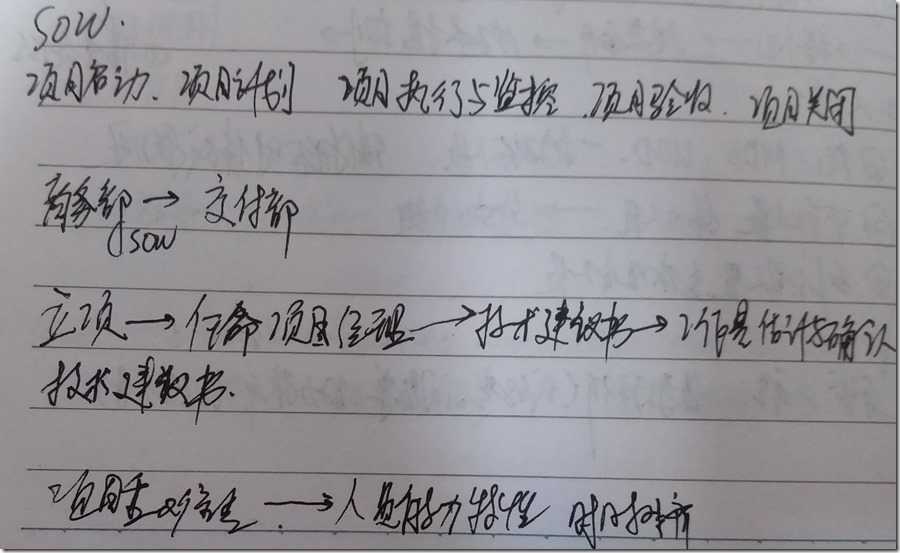 SOW.
项目启动、项目计划 项目执行与监控、项目验收、项目关闭
商务部 → 交付部
SOW
立项 → 任命项目经理 → 技术建议书 → 工作量估计与确认
技术建议书.
项目 → 人员能力特性 时时